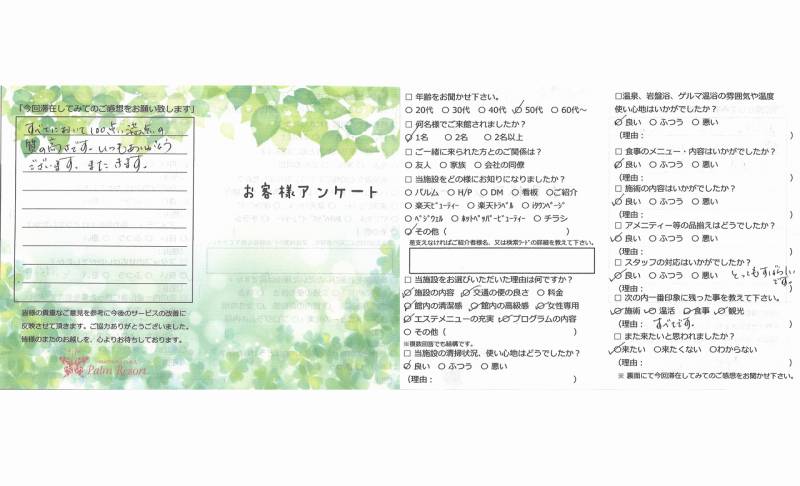 「今回滞在してみてのご感想をお願い致します」
すべてにおいて100点満点の
質の高さです。いつもありがとう
ございます。またきます。
皆様の貴重なご意見を参考に今後のサービスの改善に
反映させて頂きます。ご協力ありがとうございました。
皆様のまたのお越しを、心よりお待ちしております。
Palm Resort
お客様アンケート
□ 年齢をお聞かせ下さい。
○ 20代 ○ 30代 ○ 40代 ○ 50代 ○ 60代～
□ 何名様でご来館されましたか？
○ 1名 ○ 2名 ○ 2名以上
□ ご一緒に来られた方とのご関係は？
○ 友人 ○ 家族 ○ 会社の同僚
□ 当施設をどの様にお知りになりましたか？
○ パルム ○ H/P ○ DM ○ 看板 ○ご紹介
○ 楽天ビューティー ○ 楽天トラベル ○ iタウンページ
○ ベジウェル ○ ホットペッパービューティー ○ チラシ
○ その他（ ）
差支えなければご紹介者様名、又は検索ワードの詳細を教えて下さい。
□ 当施設をお選びいただいた理由は何ですか？
○ 施設の内容 ○ 交通の便の良さ ○ 料金
○ 館内の清潔感 ○ 館内の高級感 ○ 女性専用
○ エステメニューの充実 ○ プログラムの内容
○ その他（ ）
※複数回答でも結構です。
□ 当施設の清掃状況、使い心地はどうでしたか？
○ 良い ○ ふつう ○ 悪い
（理由： ）
□温泉、岩盤浴、ゲルマ温浴の雰囲気や温度
使い心地はいかがでしたか？
○ 良い ○ ふつう ○ 悪い
（理由： ）
□ 食事のメニュー・内容はいかがでしたか？
○ 良い ○ ふつう ○ 悪い
（理由： ）
□ 施術の内容はいかがでしたか？
○ 良い ○ ふつう ○ 悪い
（理由： ）
□ アメニティー等の品揃えはどうでしたか？
○ 良い ○ ふつう ○ 悪い
（理由： ）
□ スタッフの対応はいかがでしたか？
○ 良い ○ ふつう ○ 悪い とってもすばらしい
（理由： です。）
□ 次の内一番印象に残った事を教えて下さい。
○ 施術 ○ 温活 ○ 食事 ○ 観光
（理由： すべてです。 ）
□ また来たいと思われましたか？
○ 来たい ○ 来たくない ○ わからない
（理由： ）
※ 裏面にて今回滞在してみてのご感想をお聞かせ下さい。